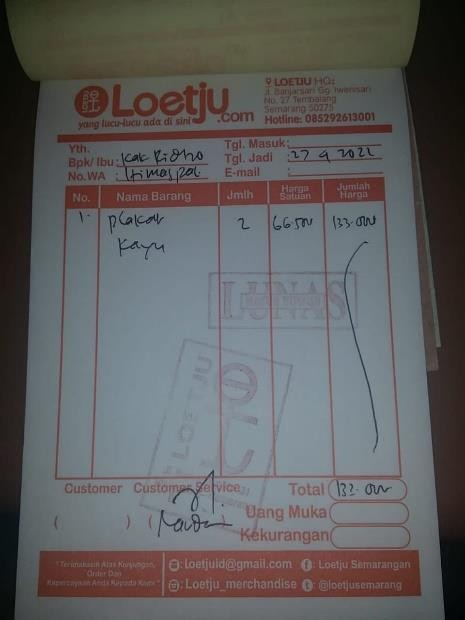 Loetju.com
yang lucu-lucu ada di sini
LOETJU HQ:
Jl. Banjarsari Gg. Iwenisari
No. 27 Tembalang
Semarang 50275
Hotline: 085292613001
Yth.
Bpk/ Ibu : Kak Ridho
No.WA : Himaspal
Tgl. Masuk :
Tgl. Jadi : 27 9 2022
E-mail :
No. Nama Barang Jmlh Harga Satuan Jumlah Harga
1. Plakat 2 66.500 133.000
Kayu
LUNAS
LOETJU
Customer Customer Service
( ) (
Total 133.000
Uang Muka
Kekurangan
" Terimakasih Atas Kunjungan,
Order Dan
Kepercayaan Anda Kepada Kami "
: Loetjuid@gmail.com
: Loetju Semarangan
: Loetju_merchandise
: @loetjusemarang